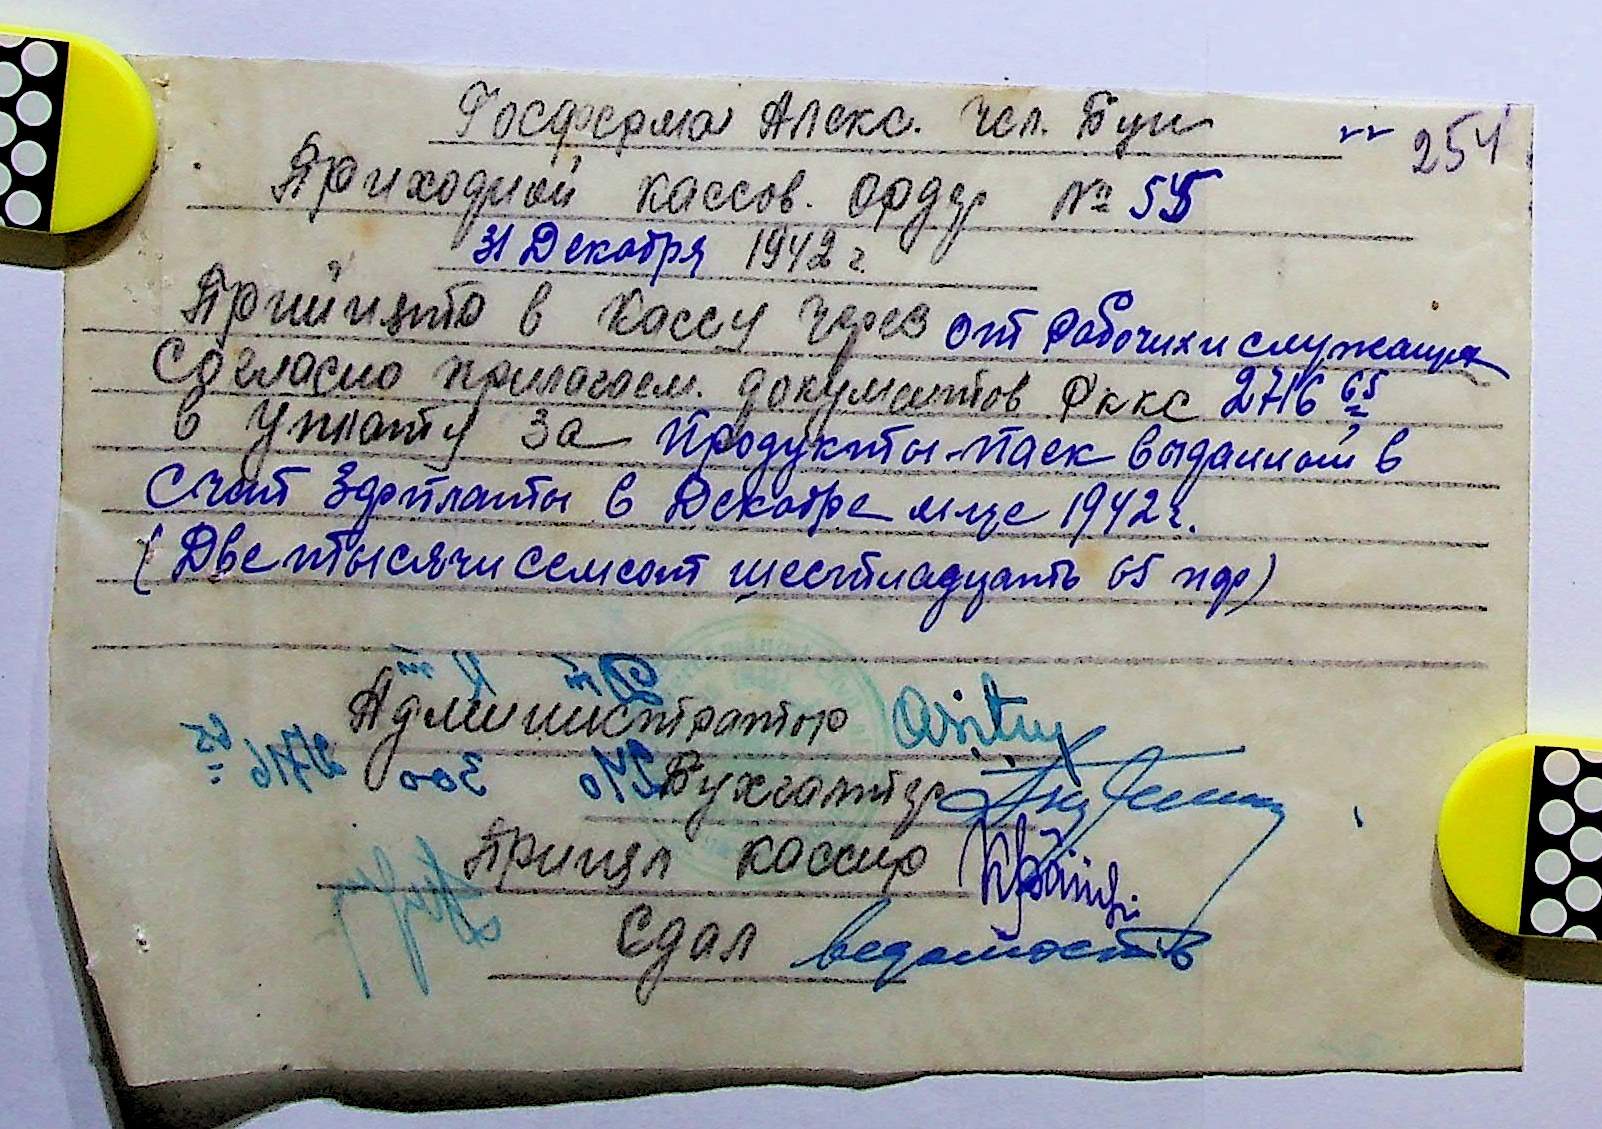 Госферма Алекс. чсл. Бун 254
Приходной кассов. ордер № 55
31 Декабря 1942 г.
Принято в кассу через от рабочих и служащих
Согласно прилагаем. документов Рккс 2716 65
в уплату за продукты-паек выданной в
счет Зарплаты в Декабре м-це 1942 г.
(Две тысячи семсот шестнадцать 65 пф)
Администратор
Бухгалтер
Принял кассир
Сдал ведомость